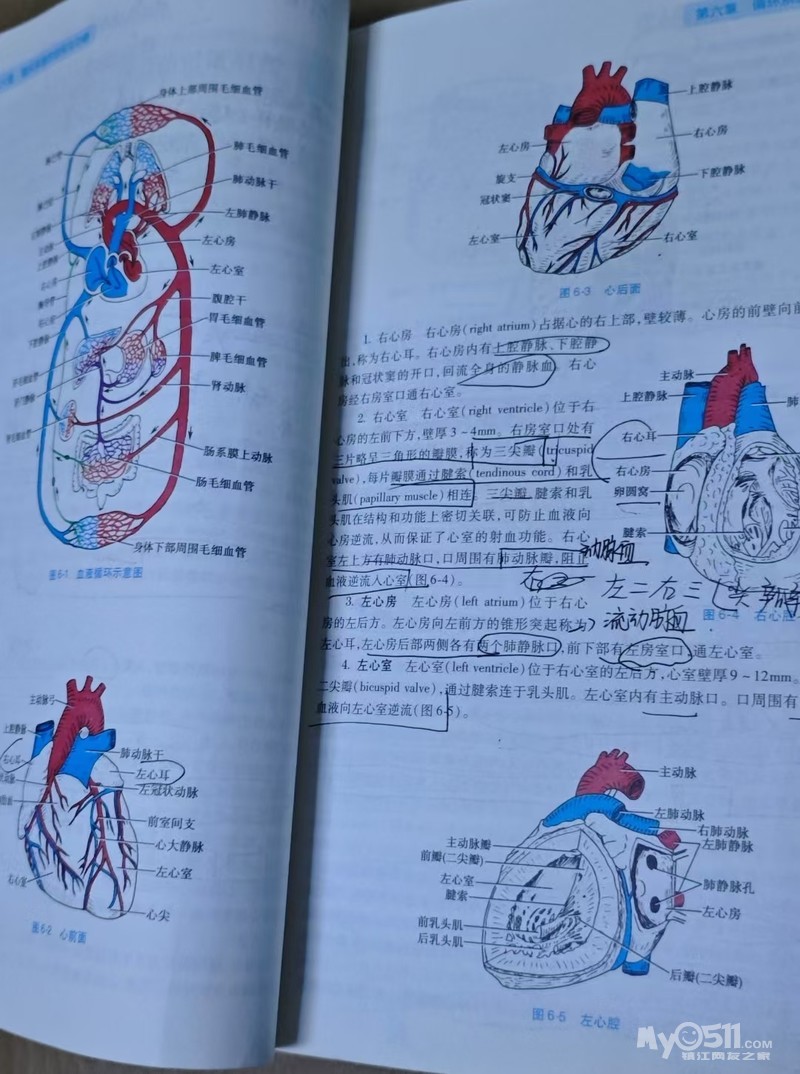 身体上部周围毛细血管
肺毛细血管
肺动脉干
左肺静脉
左心房
左心室
腹腔干
胃毛细血管
脾毛细血管
肾动脉
肠系膜上动脉
肠毛细血管
身体下部周围毛细血管
图6-1 血液循环示意图
主动脉弓
上腔静脉
右心耳
肺动脉干
左心耳
左冠状动脉
前室间支
心大静脉
左心室
右心室
心尖
图6-2 心前面
第六章
上腔静脉
左心房
右心房
旋支
下腔静脉
冠状窦
左心室
右心室
图6-3 心后面
1. 右心房 右心房(right atrium)占据心的右上部,壁较薄。心房的前壁向前
出,称为右心耳。右心房内有上腔静脉、下腔静
脉和冠状窦的开口,回流全身的静脉血。右心
房经右房室口通右心室。
2. 右心室 右心室(right ventricle)位于右
心房的左前下方,壁厚3~4mm。右房室口处有
三片略呈三角形的瓣膜,称为三尖瓣(tricuspid
valve),每片瓣膜通过腱索(tendinous cord)和乳
头肌(papillary muscle)相连。三尖瓣、腱索和乳
头肌在结构和功能上密切关联,可防止血液向
心房逆流,从而保证了心室的射血功能。右心
室左上方有肺动脉口,口周围有肺动脉瓣,阻止
血液逆流入心室(图6-4)。
3. 左心房 左心房(left atrium)位于右心
房的左后方。左心房向左前方的锥形突起称为
左心耳,左心房后部两侧各有两个肺静脉口,前下部有左房室口,通左心室。
4. 左心室 左心室(left ventricle)位于右心室的左后方,心室壁厚9~12mm。
二尖瓣(bicuspid valve),通过腱索连于乳头肌。左心室内有主动脉口。口周围有
血液向左心室逆流(图6-5)。
主动脉
上腔静脉
右心耳
右心房
卵圆窝
腱索
图6-4 右心腔
左二右三
流动脉血
主动脉
左肺动脉
右肺动脉
左肺静脉
主动脉瓣
前瓣(二尖瓣)
左心室
腱索
肺静脉孔
左心房
前乳头肌
后乳头肌
后瓣(二尖瓣)
图6-5 左心腔
My0511.COM
镇江网友之家